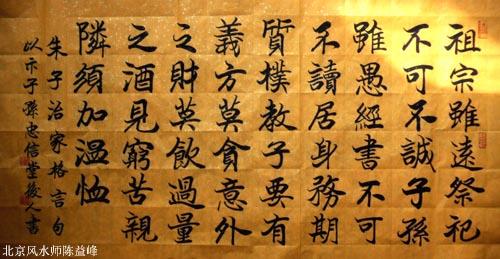 祖宗雖遠祭祀
不可不誠子孫
雖愚經書不可
不讀居身務期
質樸教子要有
義方莫貪意外
之財莫飲過量
之酒見窮苦親
隣須加溫恤
朱子治家格言句
以示子孫忠信堂後人書
北京风水师陈益峰